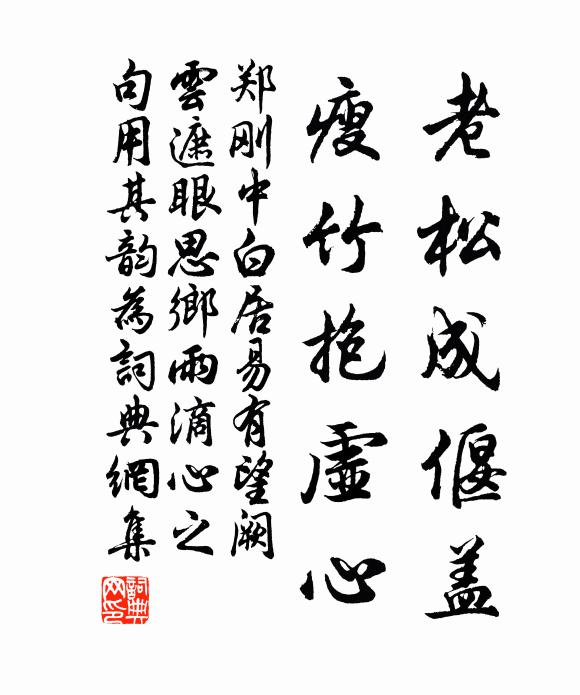 老松成偃盖
瘦竹抱虛心
郑刚中白居易有望阙
雲遮眼思鄉雨滴心之
句用其韵為詞典網集